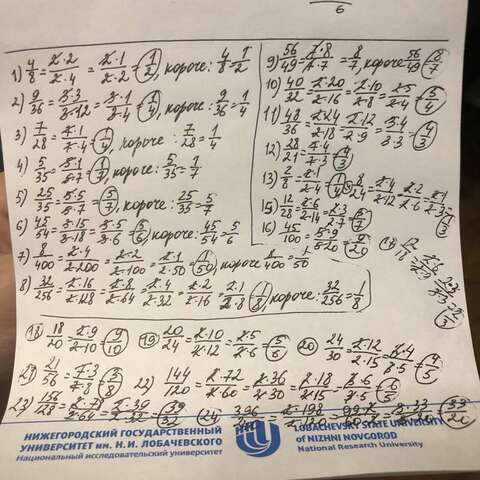 6
1) 4/8 = 2·2/2·4 = 2·1/2·2 = 1/2, короче: 4/8 = 1/2
2) 9/36 = 3·3/3·12 = 3·1/3·4 = 1/4, короче: 9/36 = 1/4
3) 7/28 = 7·1/7·4 = 1/4, короче: 7/28 = 1/4
4) 5/35 = 5·1/5·7 = 1/7, короче: 5/35 = 1/7
5) 25/35 = 5·5/5·7 = 5/7, короче: 25/35 = 5/7
6) 45/54 = 3·15/3·18 = 3·5/3·6 = 5/6, короче: 45/54 = 5/6
7) 8/400 = 2·4/2·200 = 2·2/2·100 = 2·1/2·50 = 1/50, короче 8/400 = 1/50
8) 32/256 = 2·16/2·128 = 2·8/2·64 = 2·4/2·32 = 2·2/2·16 = 2·1/2·8 = 1/8, короче: 32/256 = 1/8
9) 56/49 = 7·8/7·7 = 8/7, короче 56/49 = 8/7
10) 40/32 = 2·20/2·16 = 2·10/2·8 = 2·5/2·4 = 5/4
11) 48/36 = 2·24/2·18 = 2·12/2·9 = 3·4/3·3 = 4/3
12) 28/21 = 7·4/7·3 = 4/3
13) 2/8 = 2·1/2·4 = 1/4
8/24 = 2·4/2·12 = 2·2/2·6 = 2·1/2·3
15) 12/28 = 2·6/2·14 = 2·3/2·7
16) 45/100 = 5·9/5·20 = 9/20
18) 18/20 = 2·9/2·10 = 9/10
19) 20/24 = 2·10/2·12 = 2·5/2·6 = 5/6
20) 24/30 = 2·12/2·15 = 3·4/3·5 = 4/5
21/56 = 7·3/7·8 = 3/8
22) 144/120 = 2·72/2·60 = 2·36/2·30 = 2·18/2·15 = 3·6/3·5 = 6/5
23) 156/128 = 2·78/2·64 = 2·39/2·32 = 39/32
24) 396
НИЖЕГОРОДСКИЙ ГОСУДАРСТВЕННЫЙ
УНИВЕРСИТЕТ им. Н.И. ЛОБАЧЕВСКОГО
Национальный исследовательский университет
LOBACHEVSKY STATE UNIVERSITY
of NIZHNI NOVGOROD
National Research University